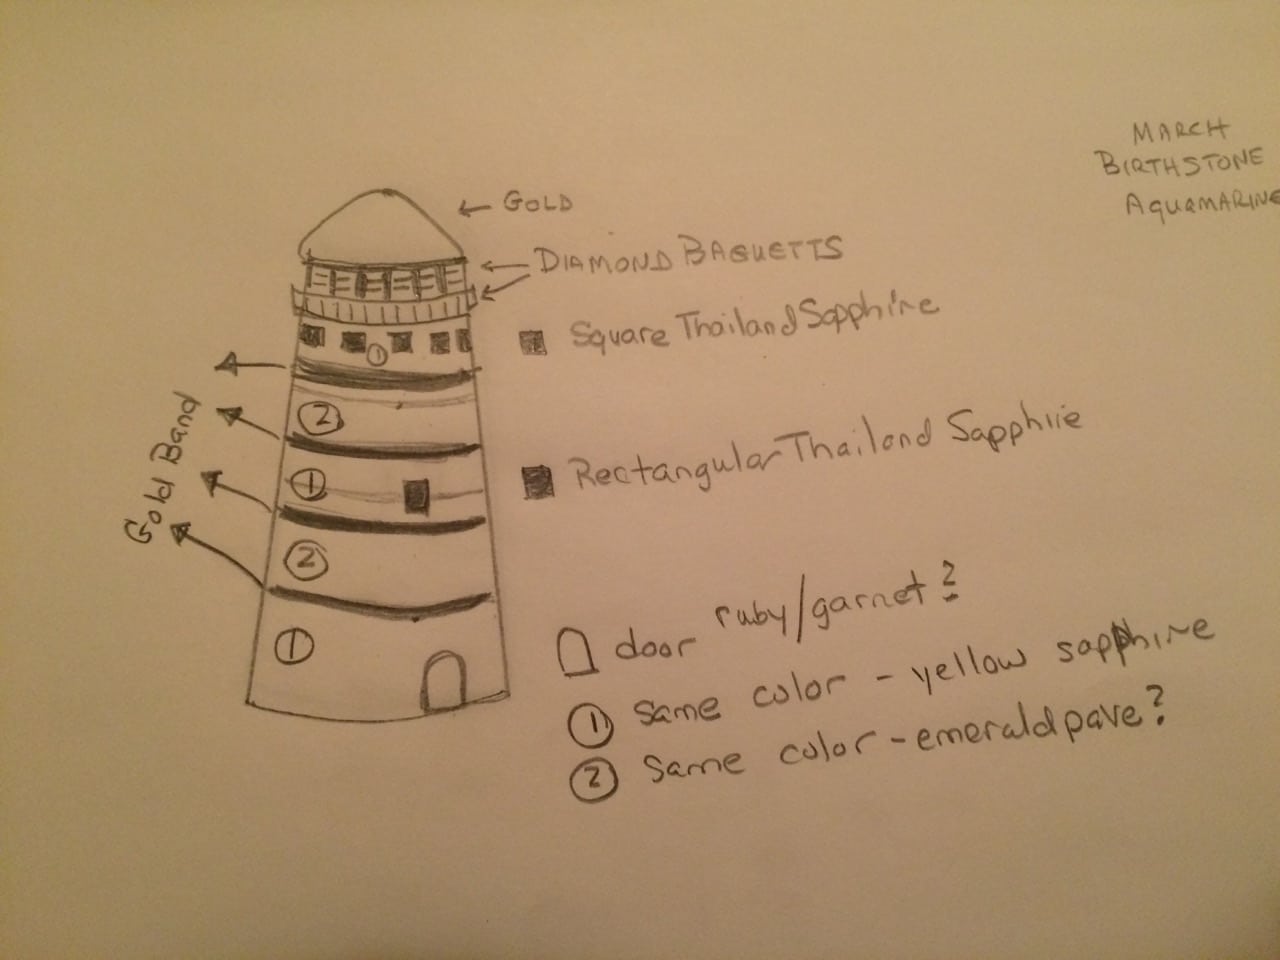 MARCH
BIRTHSTONE
AQUAMARINE
← GOLD
DIAMOND BAGUETTS
Square Thailand Sapphire
1
2
Gold Band
1
Rectangular Thailand Sapphire
2
door ruby/garnet?
1
1 same color - yellow sapphire
2 same color - emerald pave?